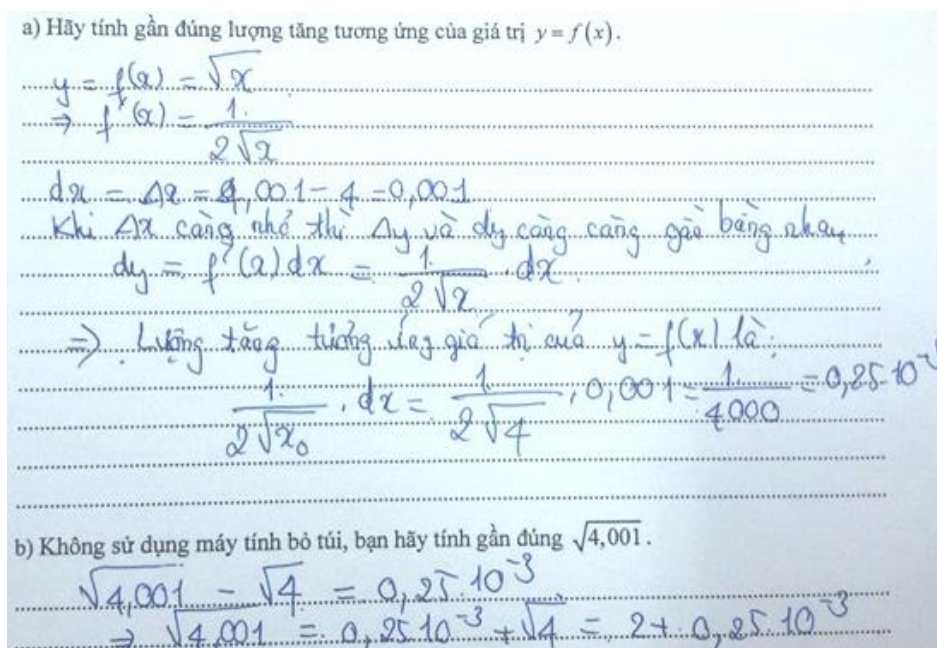 a) Hãy tính gần đúng lượng tăng tương ứng của giá trị y = f(x).
y = f(x) = √x
⇒ f'(x) = 1/(2√x)
dx = Δx = 4,001 - 4 = 0,001
Khi Δx càng nhỏ thì Δy và dy càng càng gần bằng nhau
dy = f'(x)dx = 1/(2√x) . dx.
⇒ Lượng tăng tương ứng giá trị cuả y = f(x) là:
1/(2√x₀) . dx = 1/(2√4) . 0,001 = 1/4000 = 0,25.10
b) Không sử dụng máy tính bỏ túi, bạn hãy tính gần đúng √4,001.
√4,001 - √4 = 0,25.10⁻³
⇒ √4,001 = 0,25.10⁻³ + √4 = 2 + 0,25.10⁻³